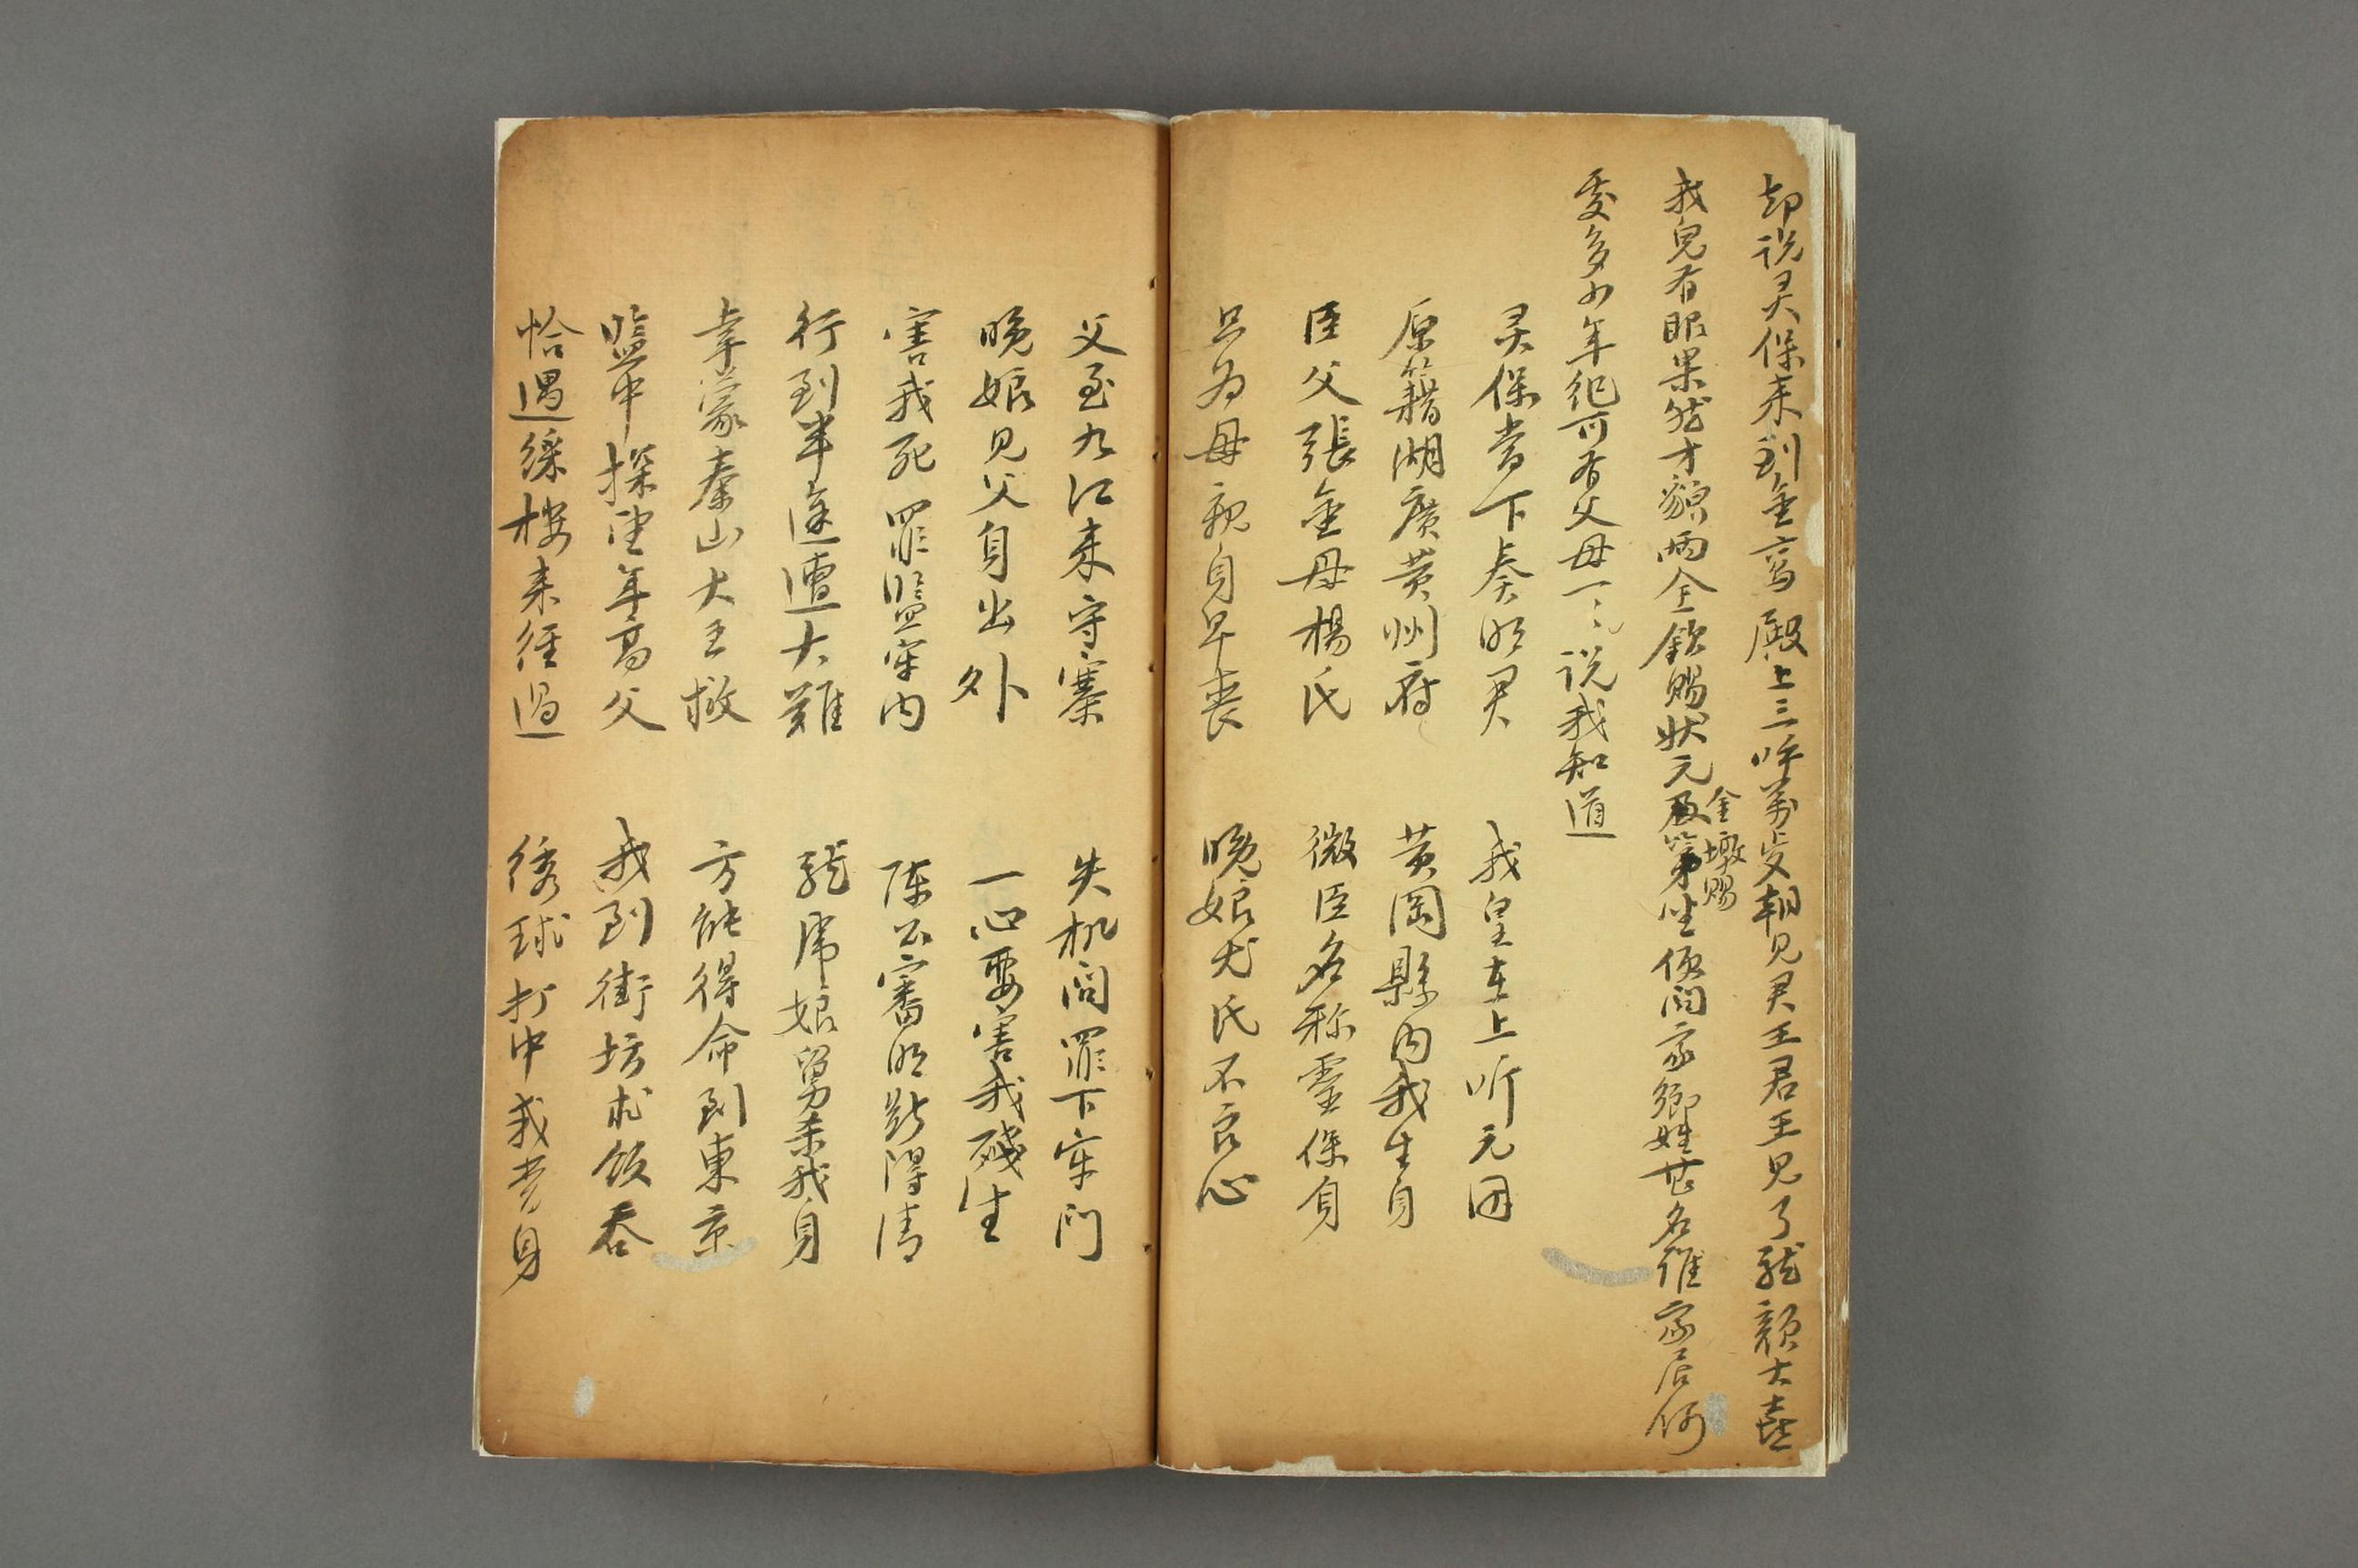 却说灵保来到金鸾殿上三呼萬岁朝见君王君王见了龍顏大喜
我兒有眼果然才貌两全欽賜狀元及第金墩賜坐便问家鄉姓甚名誰家居何
處多少年纪可有父母一一说我知道
灵保当下奏明君 我皇在上听元因
原籍湖廣黄州府 黄岡縣内我生身
臣父張金母楊氏 微臣名称靈保身
只为母親身早喪 晚娘尤氏不良心
父至九江来守寨 失机问罪下牢门
晚娘见父身出外 一心要害我殘生
害我死罪監牢内 陈公審明断得清
行到半途遭大難 龍虎娘舅杀我身
幸蒙秦山大王救 方能得命到東京
監中探望年高父 我到街坊求飯吞
恰遇綵楼来经过 绣球打中我貴身